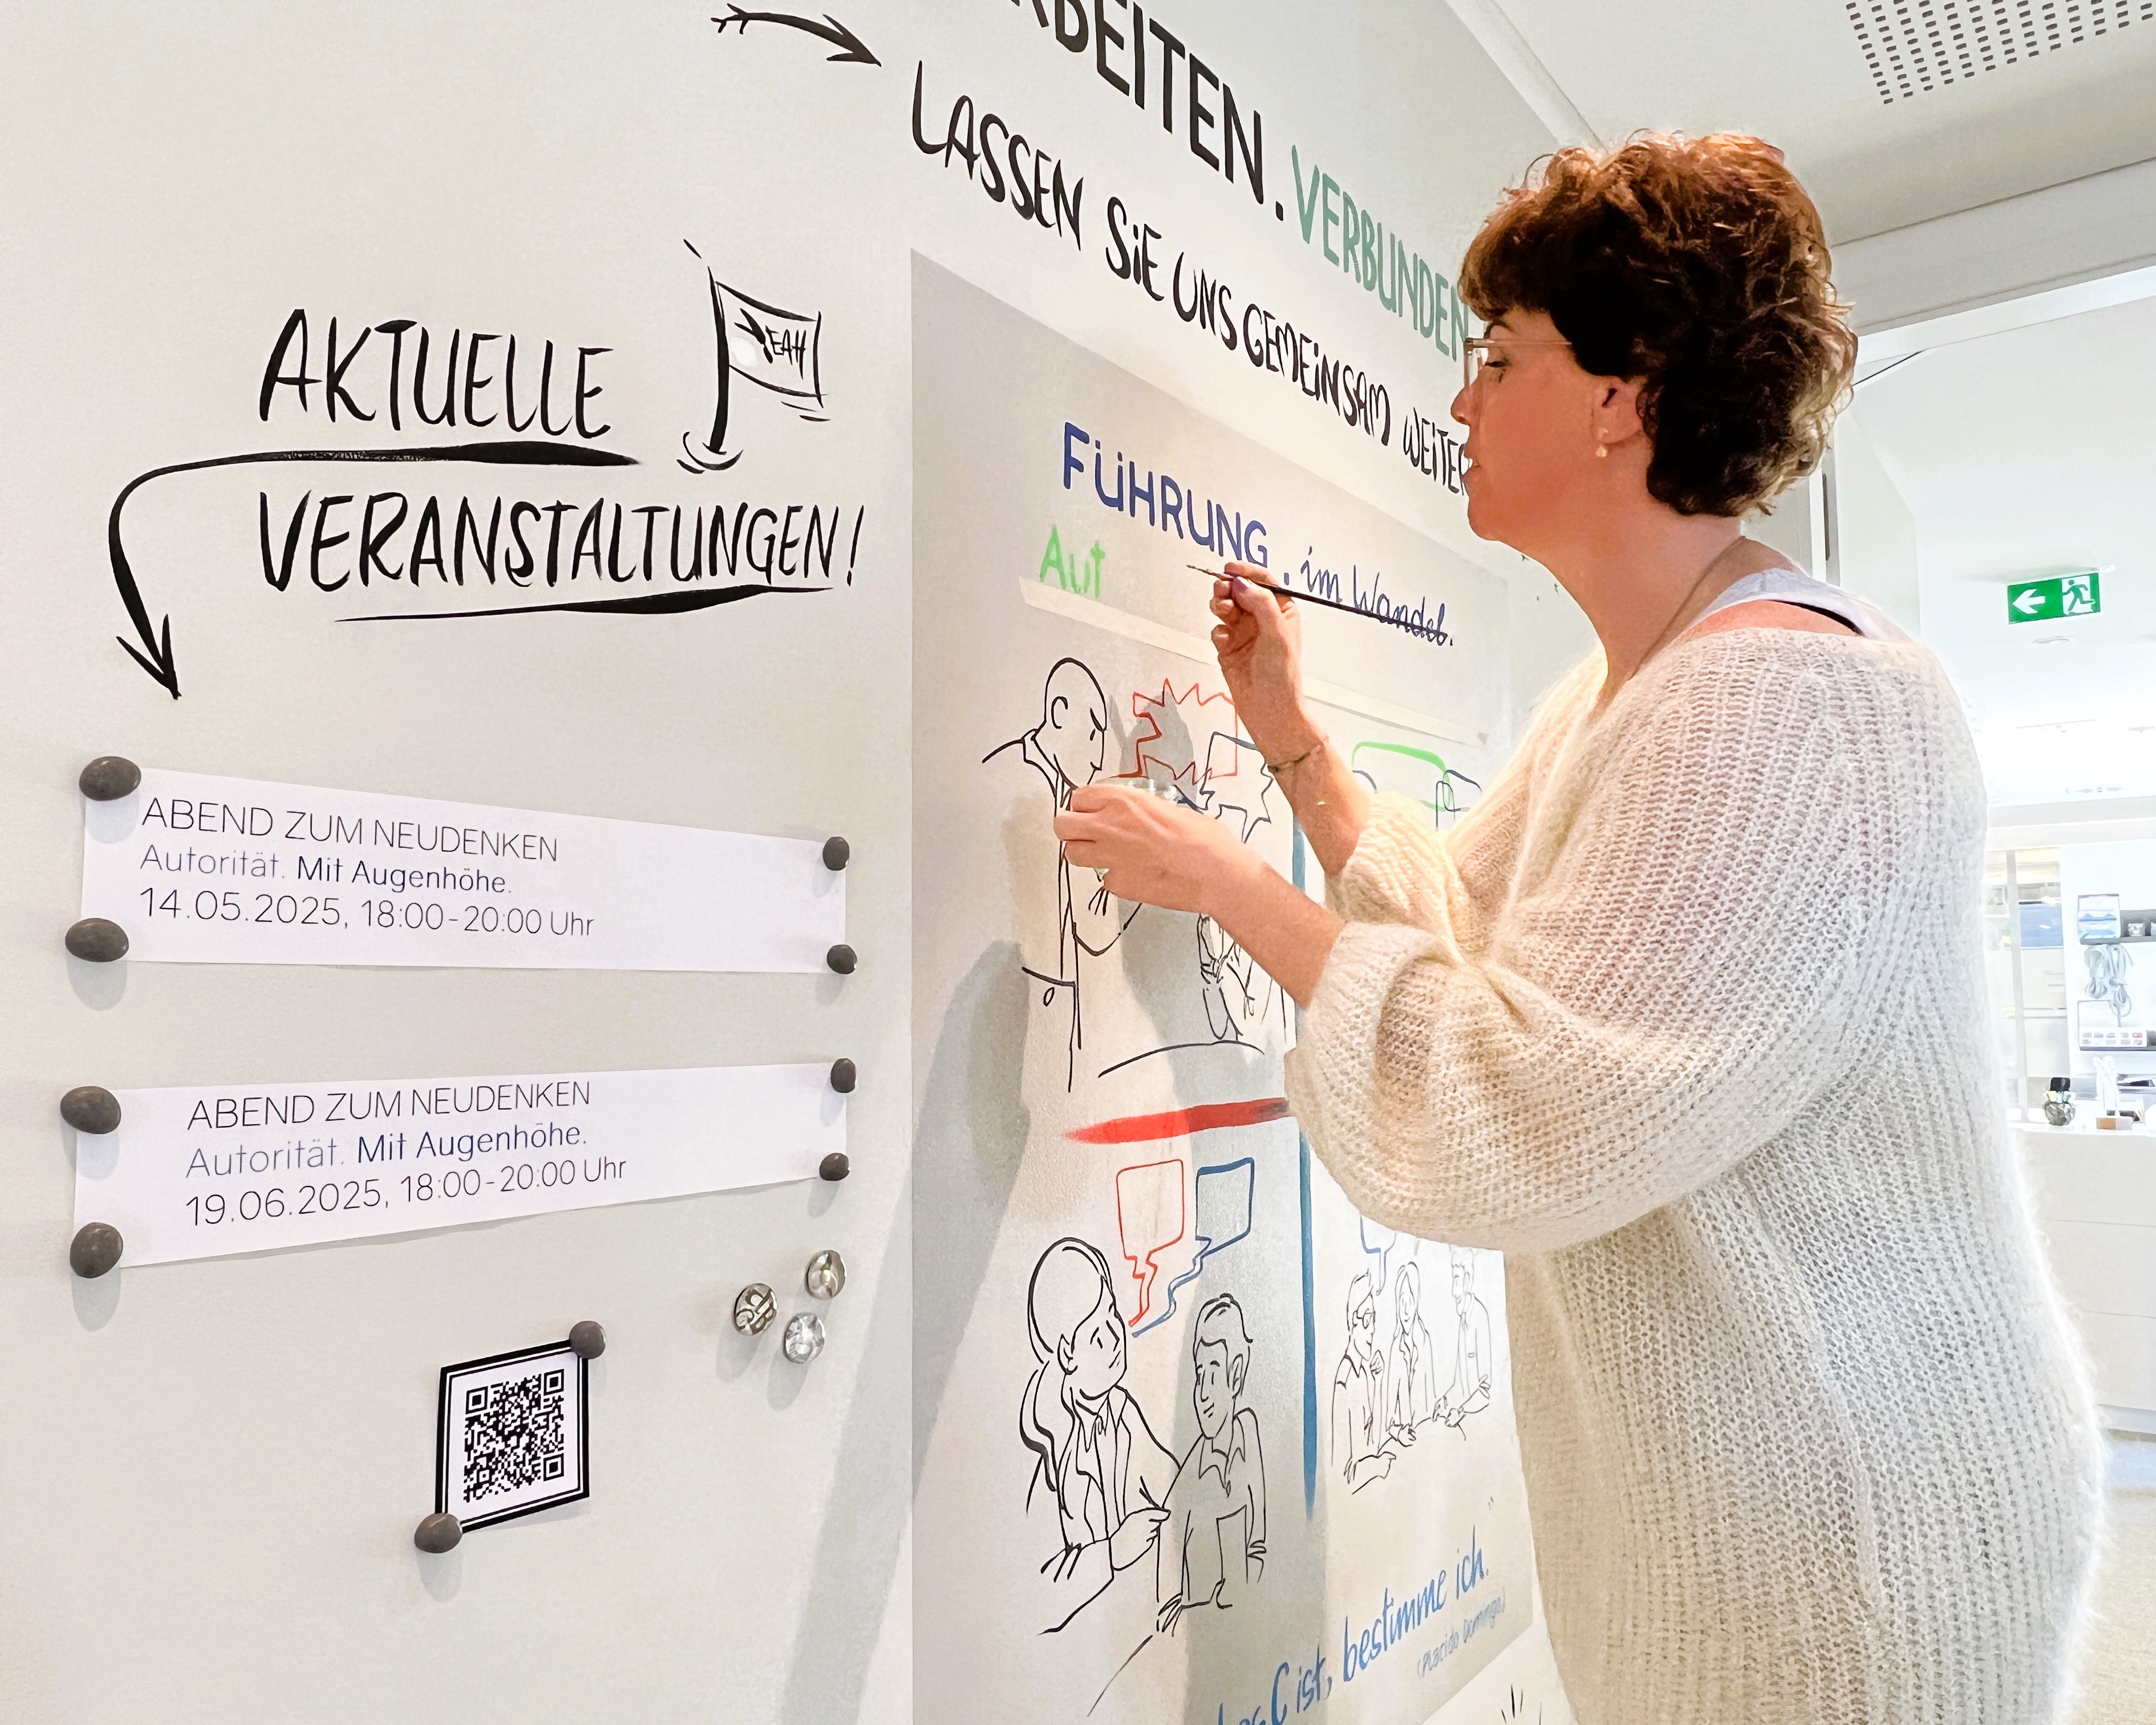 AKTUELLE
YEAH
VERANSTALTUNGEN!
ABEND ZUM NEUDENKEN
Autorität. Mit Augenhöhe.
14.05.2025, 18:00-20:00 Uhr
ABEND ZUM NEUDENKEN
Autorität. Mit Augenhöhe.
19.06.2025, 18:00-20:00 Uhr
VERBUNDEN
LASSEN SiE UNS GEMEiNSAM
FÜHRUNG. im Wandel.
Aut
ist, bestimme ich.
(Placido Domingo)